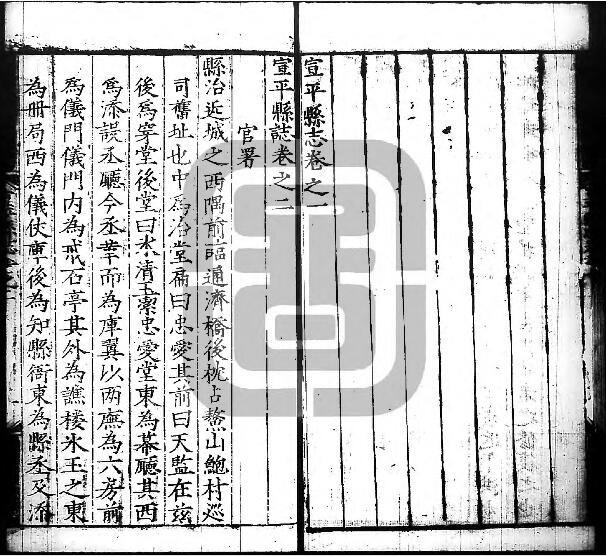 宣平縣志卷之一
宣平縣誌卷之二
官署
縣治近城之西隅前臨通濟橋後枕占鰲山鮑村巡
司舊址也中爲治堂扁曰忠愛其前曰天監在玆
後爲穿堂後堂曰氷清玉潔忠愛堂東為幕廳其西
爲添設丞廳今丞革而為庫翼以兩廡為六房前
爲儀門儀門内為戒石亭其外為譙楼氷玉之東
為冊局西為儀仗庫後為知縣衙東為縣丞及添